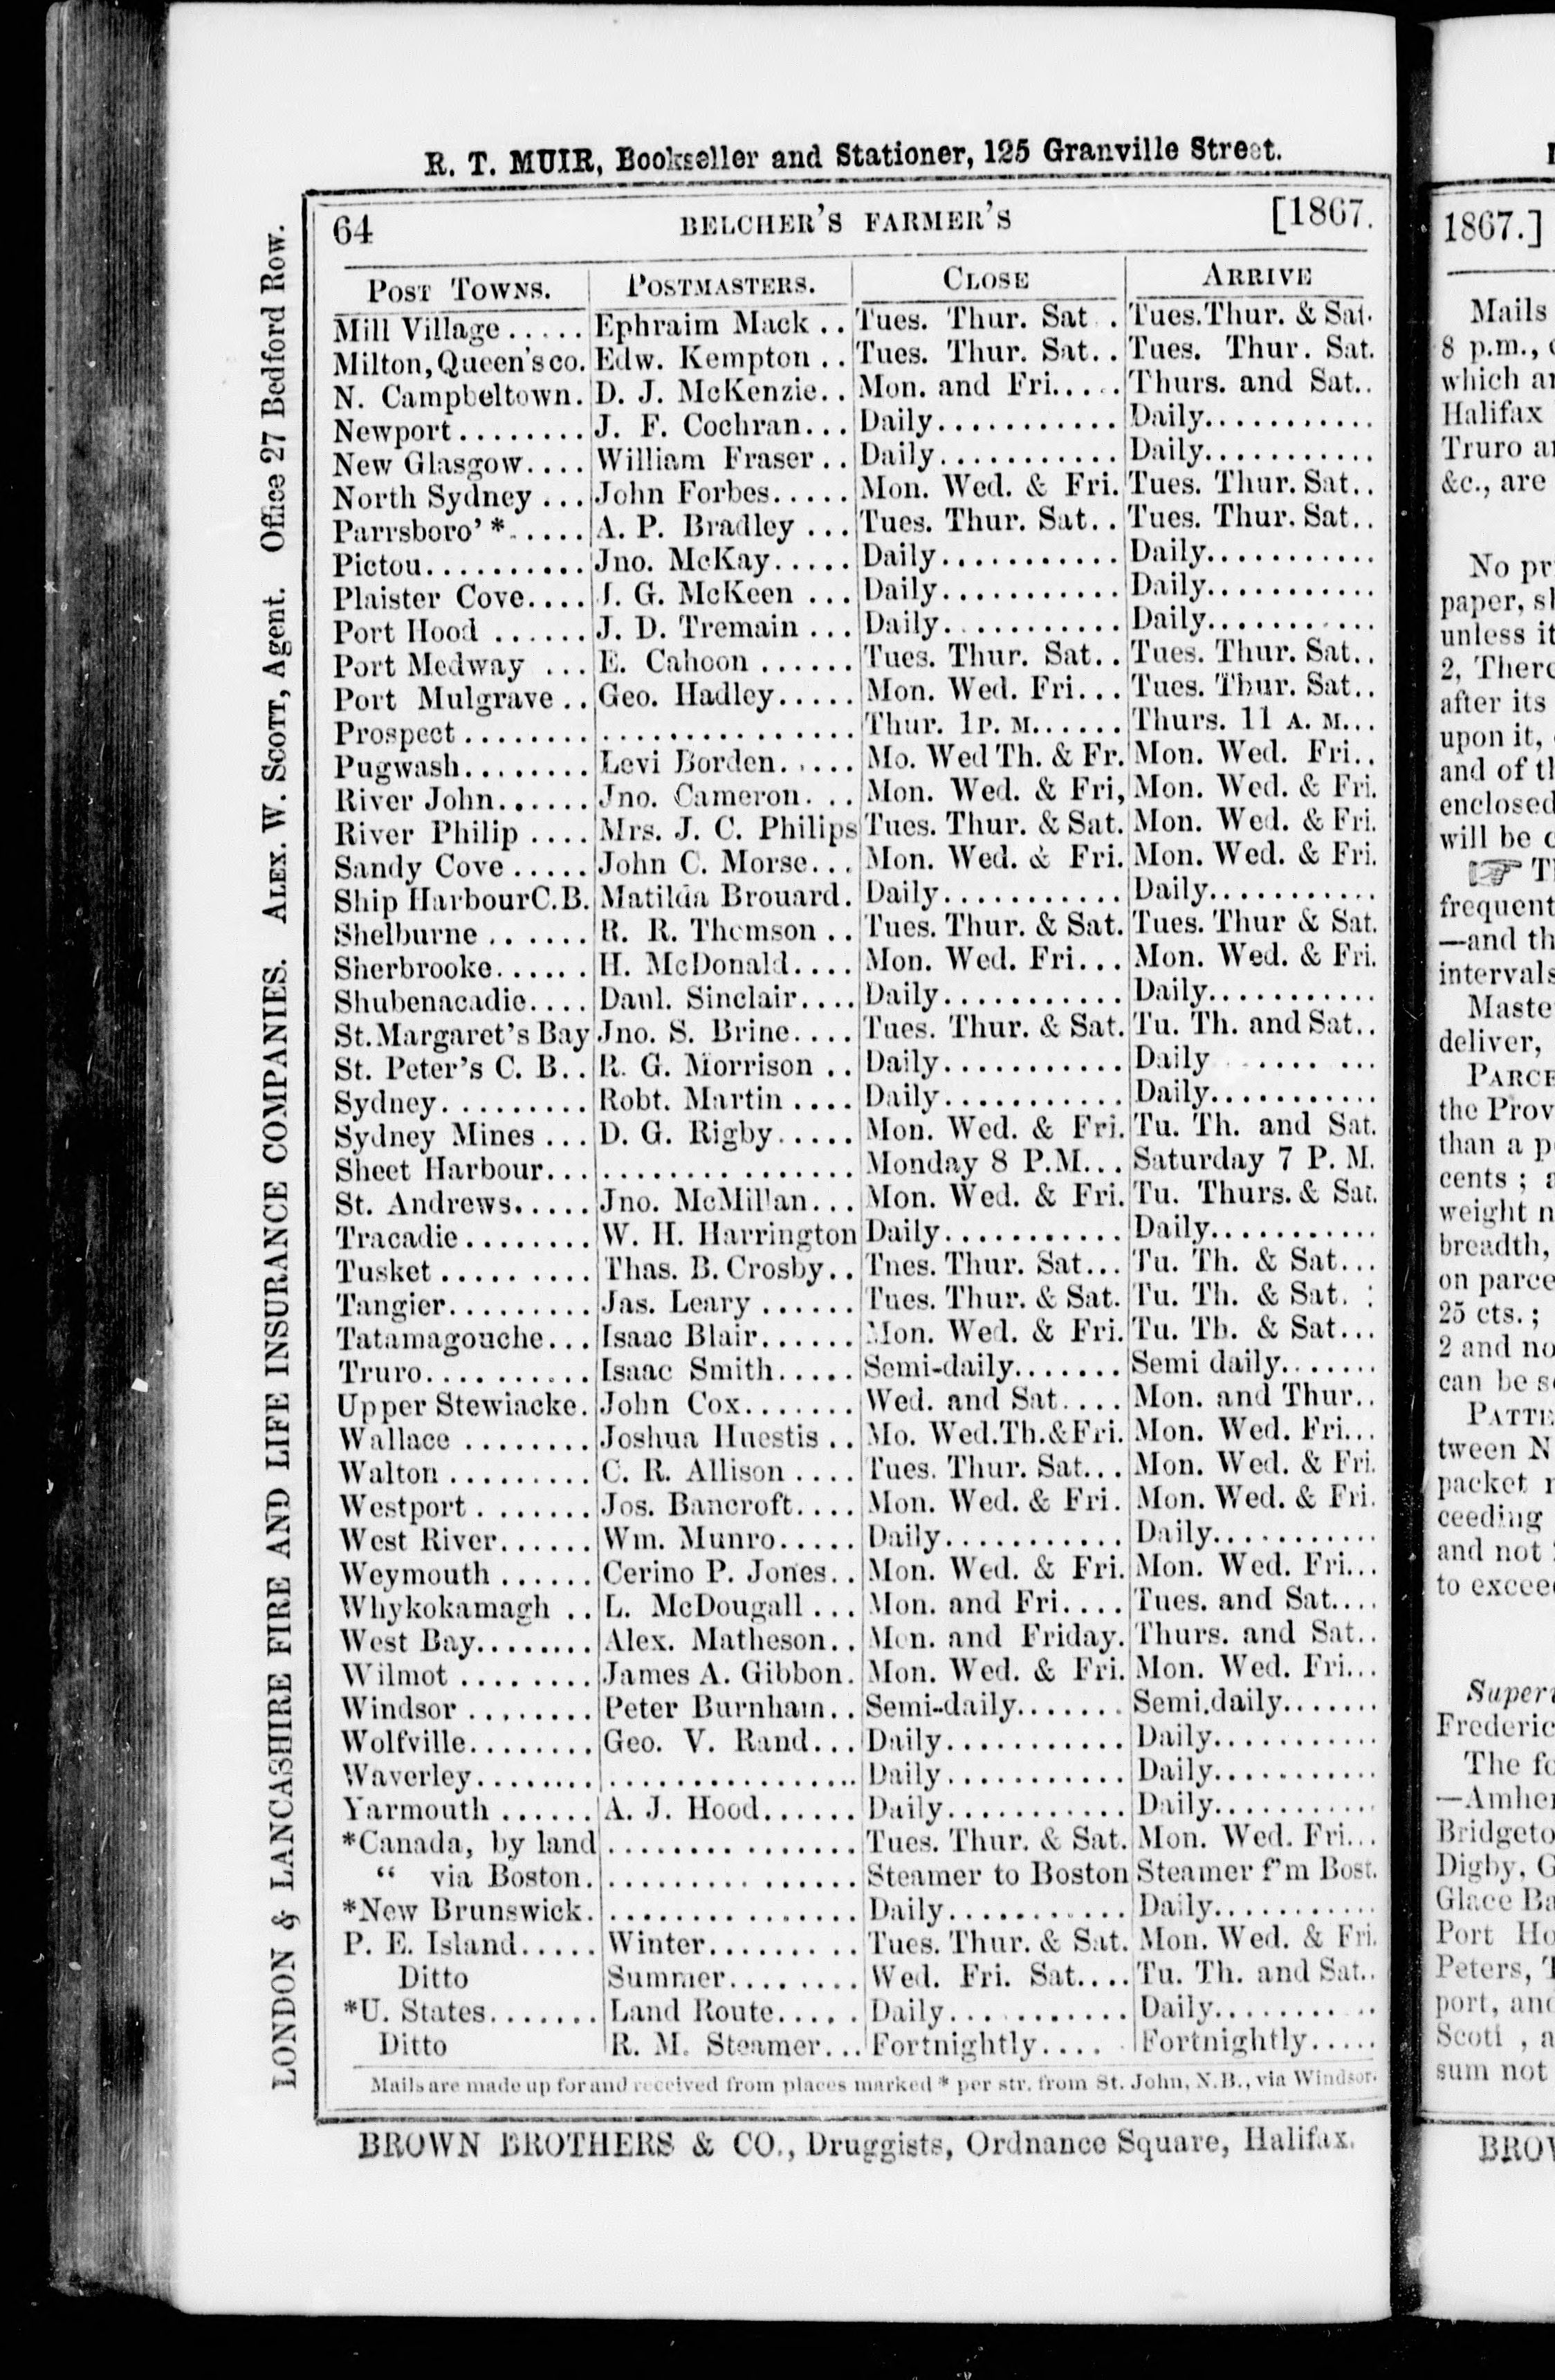 R. T. MUIR, Bookseller and Stationer, 125 Granville Street.
64 BELCHER'S FARMER'S [1867.
POST TOWNS. POSTMASTERS. CLOSE ARRIVE
Mill Village..... Ephraim Mack.. Tues. Thur. Sat.. Tues.Thur. & Sat.
Milton, Queen's co. Edw. Kempton.. Tues. Thur. Sat.. Tues. Thur. Sat.
N. Campbeltown. D. J. McKenzie.. Mon. and Fri..... Thurs. and Sat..
Newport........ J. F. Cochran... Daily........... Daily...........
New Glasgow.... William Fraser.. Daily........... Daily...........
North Sydney... John Forbes..... Mon. Wed. & Fri. Tues. Thur. Sat..
Parrsboro' *..... A. P. Bradley... Tues. Thur. Sat.. Tues. Thur. Sat..
Pictou.......... Jno. McKay..... Daily........... Daily...........
Plaister Cove.... J. G. McKeen... Daily........... Daily...........
Port Hood...... J. D. Tremain... Daily........... Daily...........
Port Medway... E. Cahoon...... Tues. Thur. Sat.. Tues. Thur. Sat..
Port Mulgrave.. Geo. Hadley..... Mon. Wed. Fri... Tues. Thur. Sat..
Prospect........ ............... Thur. 1P. M...... Thurs. 11 A. M...
Pugwash........ Levi Borden..... Mo. Wed Th. & Fr. Mon. Wed. Fri..
River John...... Jno. Cameron... Mon. Wed. & Fri, Mon. Wed. & Fri.
River Philip.... Mrs. J. C. Philips Tues. Thur. & Sat. Mon. Wed. & Fri.
Sandy Cove..... John C. Morse... Mon. Wed. & Fri. Mon. Wed. & Fri.
Ship HarbourC.B. Matilda Brouard. Daily........... Daily...........
Shelburne...... R. R. Thomson.. Tues. Thur. & Sat. Tues. Thur & Sat.
Sherbrooke...... H. McDonald.... Mon. Wed. Fri... Mon. Wed. & Fri.
Shubenacadie.... Danl. Sinclair.... Daily........... Daily...........
St. Margaret's Bay Jno. S. Brine.... Tues. Thur. & Sat. Tu. Th. and Sat..
St. Peter's C. B.. R. G. Morrison.. Daily........... Daily...........
Sydney......... Robt. Martin.... Daily........... Daily...........
Sydney Mines... D. G. Rigby..... Mon. Wed. & Fri. Tu. Th. and Sat.
Sheet Harbour... ............... Monday 8 P.M... Saturday 7 P. M.
St. Andrews..... Jno. McMillan... Mon. Wed. & Fri. Tu. Thurs. & Sat.
Tracadie........ W. H. Harrington Daily........... Daily...........
Tusket.......... Thas. B. Crosby.. Tues. Thur. Sat... Tu. Th. & Sat...
Tangier......... Jas. Leary...... Tues. Thur. & Sat. Tu. Th. & Sat. :
Tatamagouche... Isaac Blair...... Mon. Wed. & Fri. Tu. Th. & Sat...
Truro.......... Isaac Smith..... Semi-daily....... Semi daily.......
Upper Stewiacke. John Cox....... Wed. and Sat.... Mon. and Thur..
Wallace........ Joshua Huestis.. Mo. Wed.Th.&Fri. Mon. Wed. Fri...
Walton......... C. R. Allison.... Tues. Thur. Sat... Mon. Wed. & Fri.
Westport....... Jos. Bancroft.... Mon. Wed. & Fri. Mon. Wed. & Fri.
West River...... Wm. Munro..... Daily........... Daily...........
Weymouth...... Cerino P. Jones.. Mon. Wed. & Fri. Mon. Wed. Fri...
Whykokamagh.. L. McDougall... Mon. and Fri.... Tues. and Sat....
West Bay........ Alex. Matheson.. Mon. and Friday. Thurs. and Sat..
Wilmot........ James A. Gibbon. Mon. Wed. & Fri. Mon. Wed. Fri...
Windsor........ Peter Burnham.. Semi-daily....... Semi.daily.......
Wolfville........ Geo. V. Rand... Daily........... Daily...........
Waverley........ ................ Daily........... Daily...........
Yarmouth...... A. J. Hood...... Daily........... Daily...........
*Canada, by land ............... Tues. Thur. & Sat. Mon. Wed. Fri...
" via Boston. ............... Steamer to Boston Steamer f'm Bost.
*New Brunswick. ............... Daily........... Daily...........
P. E. Island..... Winter.......... Tues. Thur. & Sat. Mon. Wed. & Fri.
Ditto Summer........ Wed. Fri. Sat.... Tu. Th. and Sat..
*U. States....... Land Route..... Daily........... Daily...........
Ditto R. M. Steamer... Fortnightly.... Fortnightly.....
Mails are made up for and received from places marked * per str. from St. John, N.B., via Windsor.
BROWN BROTHERS & CO., Druggists, Ordnance Square, Halifax.
LONDON & LANCASHIRE FIRE AND LIFE INSURANCE COMPANIES. ALEX. W. SCOTT, Agent. Office 27 Bedford Row.
1867.]
Mails
8 p.m.,
which
Halifax
Truro
&c., are
No
paper,
unless it
2, There
after its
upon it,
and of
enclosed
will be
frequent
—and
intervals
Master
deliver,
PARCE
the Prov
than a
cents ;
weight
breadth,
on parce
25 cts. ;
2 and no
can be
PATTE
tween N
packet
ceeding
and not
to excee
Super
Frederic
The
—Amher
Bridgeto
Digby, G
Glace Ba
Port Ho
Peters,
port, and
sum not
BROW